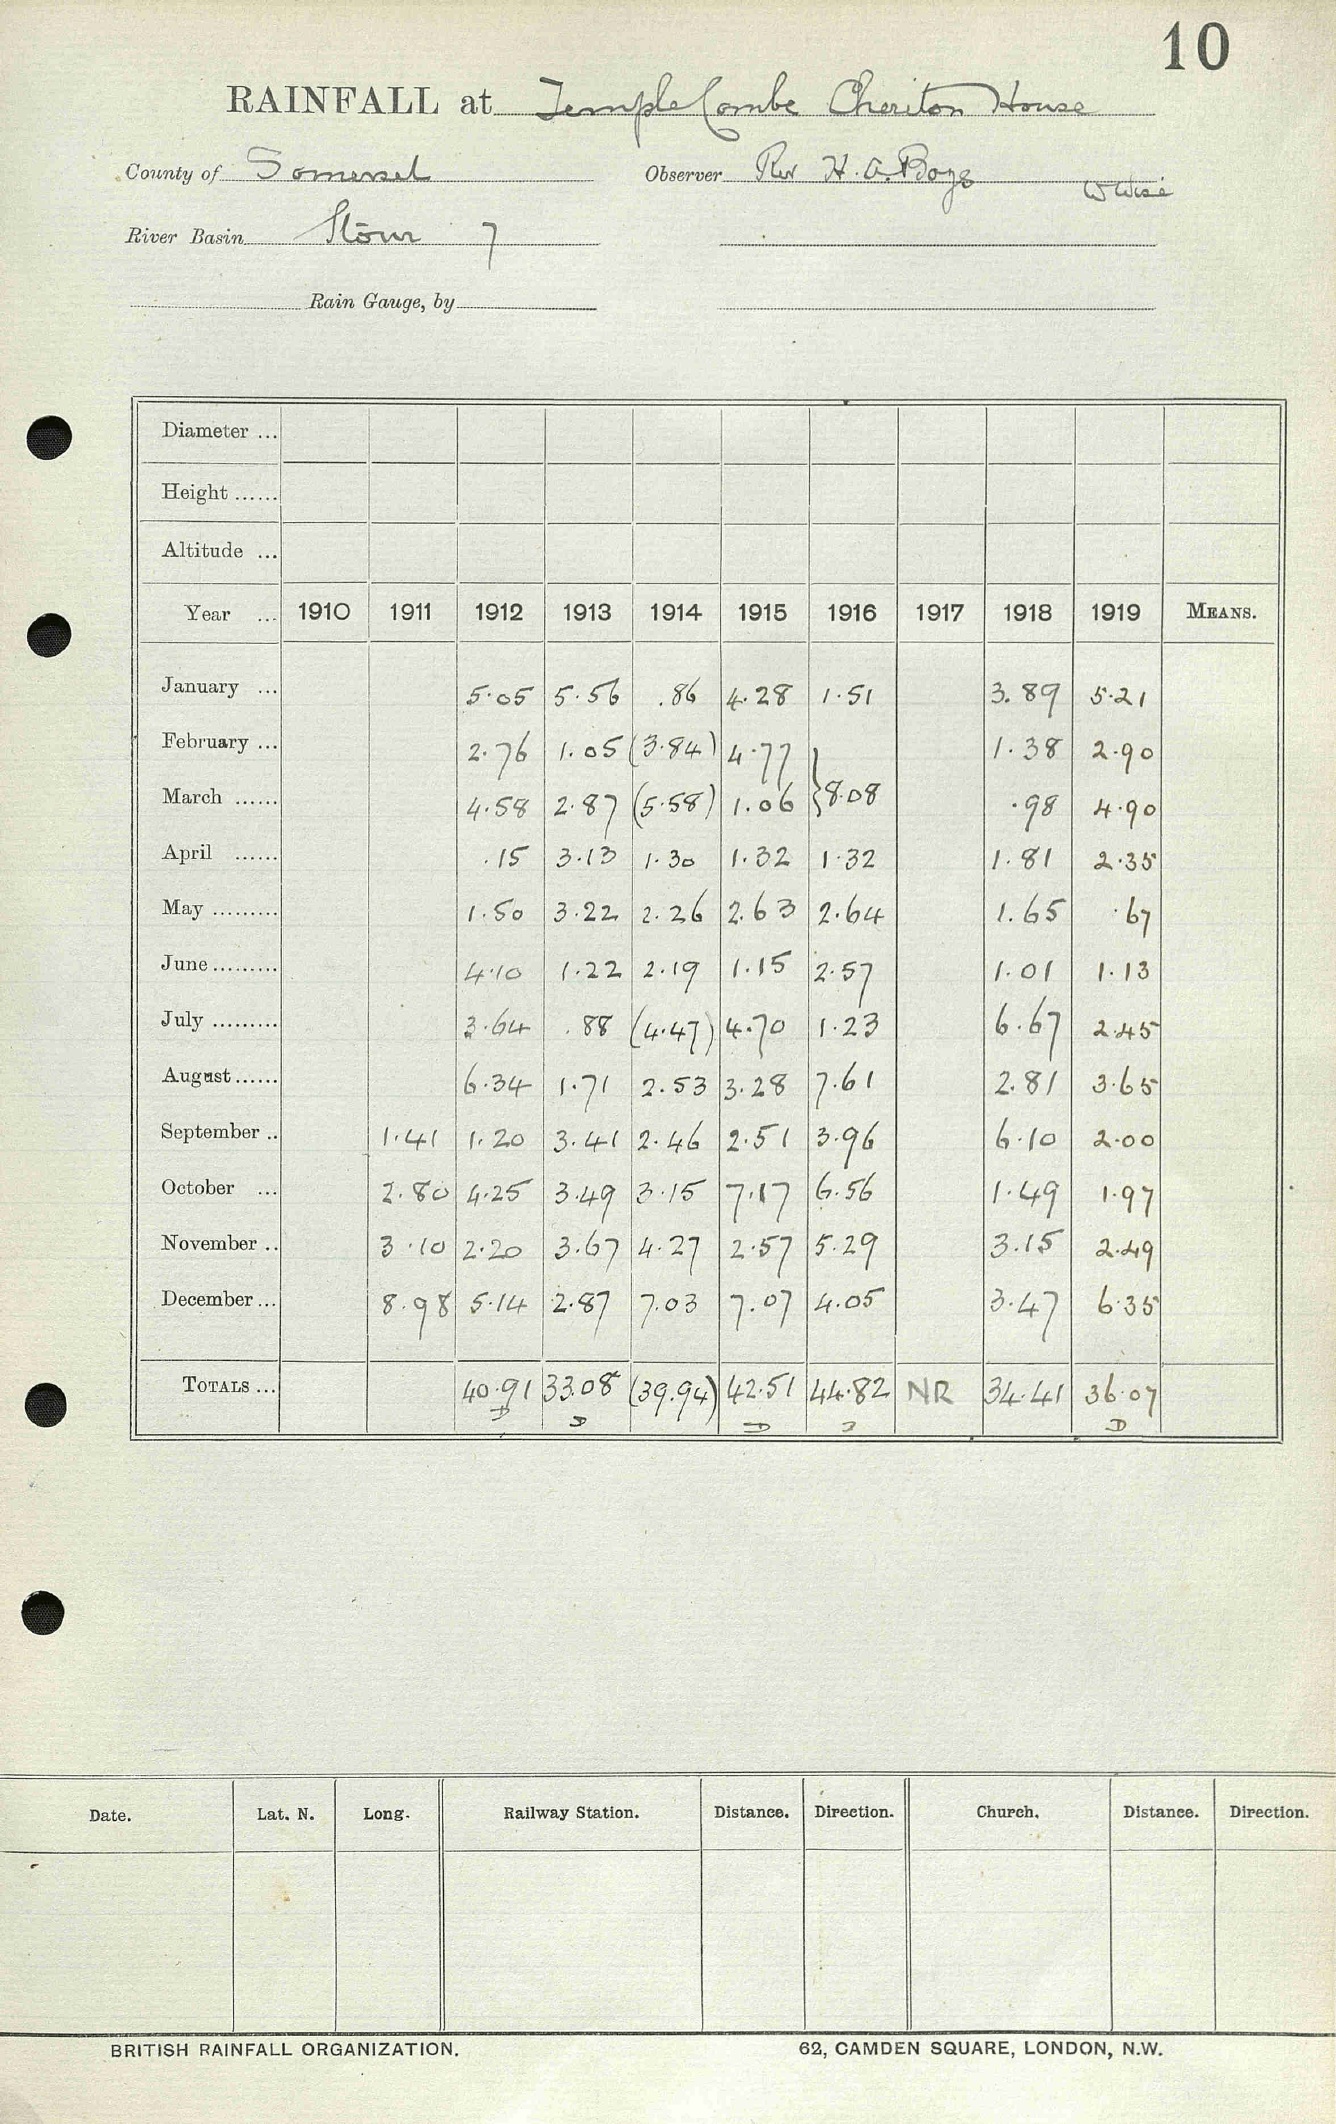 10
RAINFALL at Temple Combe Cheriton House
County of Somerset Observer Rev H. A. Boys W Wise
River Basin Stour 7
Rain Gauge, by
Diameter ...
Height ......
Altitude ...
Year ... 1910 1911 1912 1913 1914 1915 1916 1917 1918 1919 MEANS.
January ... 5.05 5.56 .86 4.28 1.51 3.89 5.21
February ... 2.76 1.05 (3.84) 4.77 1.38 2.90
March ...... 4.58 2.87 (5.58) 1.06 }8.08 .98 4.90
April ...... .15 3.13 1.30 1.32 1.32 1.81 2.35
May ......... 1.50 3.22 2.26 2.63 2.64 1.65 .67
June ......... 4.10 1.22 2.19 1.15 2.57 1.01 1.13
July ......... 3.64 .88 (4.47) 4.70 1.23 6.67 2.45
August ...... 6.34 1.71 2.53 3.28 7.61 2.81 3.65
September .. 1.41 1.20 3.41 2.46 2.51 3.96 6.10 2.00
October ... 2.80 4.25 3.49 3.15 7.17 6.56 1.49 1.97
November .. 3.10 2.20 3.67 4.27 2.57 5.29 3.15 2.49
December ... 8.98 5.14 2.87 7.03 7.07 4.05 3.47 6.35
TOTALS ... 40.91 33.08 (39.94) 42.51 44.82 NR 34.41 36.07
D D D D D
Date. Lat. N. Long. Railway Station. Distance. Direction. Church. Distance. Direction.
BRITISH RAINFALL ORGANIZATION. 62, CAMDEN SQUARE, LONDON, N.W.